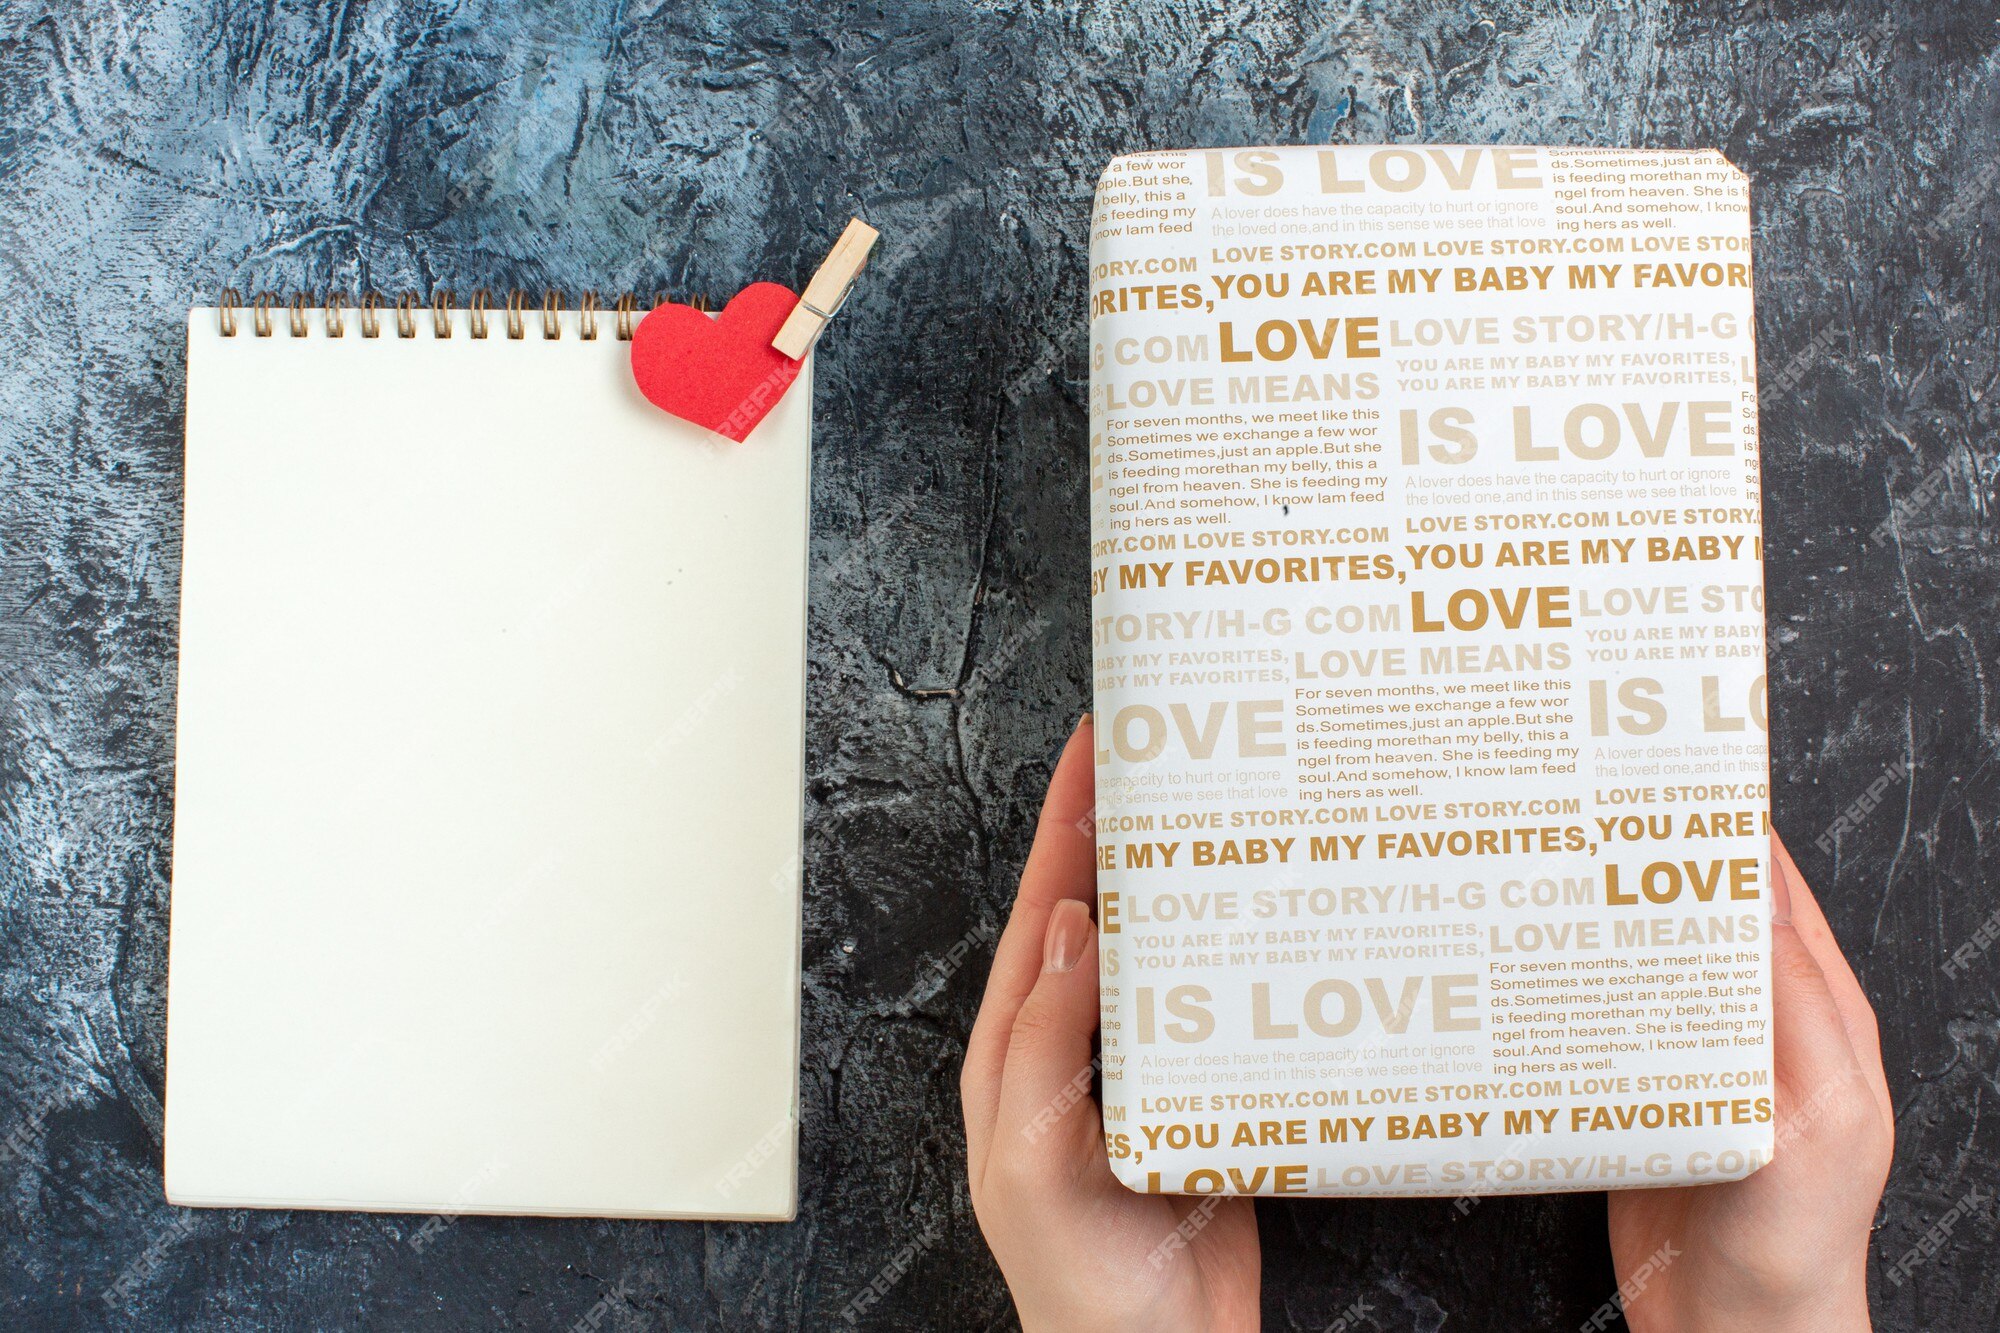 like this
a few wor
pple.But she,
belly, this a
is feeding my
now Iam feed
IS LOVE
A lover does have the capacity to hurt or ignore
the loved one,and in this sense we see that love
Sometimes we exchan
ds.Sometimes,just an a
is feeding morethan my be
ngel from heaven. She is f
soul.And somehow, I know
ing hers as well.
TORY.COM LOVE STORY.COM LOVE STORY.COM LOVE STOR
ORITES,YOU ARE MY BABY MY FAVOR
G COM LOVE LOVE STORY/H-G C
YOU ARE MY BABY MY FAVORITES,
YOU ARE MY BABY MY FAVORITES, L
LOVE MEANS
For seven months, we meet like this
Sometimes we exchange a few wor
ds.Sometimes,just an apple.But she
is feeding morethan my belly, this a
ngel from heaven. She is feeding my
soul.And somehow, I know Iam feed
ing hers as well.
E
IS LOVE
A lover does have the capacity to hurt or ignore
the loved one,and in this sense we see that love
Fo
ds.
is
ng
sou
ing
ORY.COM LOVE STORY.COM LOVE STORY.COM LOVE STORY.C
BY MY FAVORITES,YOU ARE MY BABY M
STORY/H-G COM LOVE LOVE STO
BABY MY FAVORITES,
BABY MY FAVORITES,
LOVE MEANS
YOU ARE MY BABY
YOU ARE MY BABY
LOVE
e capacity to hurt or ignore
sense we see that love
For seven months, we meet like this
Sometimes we exchange a few wor
ds.Sometimes,just an apple.But she
is feeding morethan my belly, this a
ngel from heaven. She is feeding my
soul.And somehow, I know Iam feed
ing hers as well.
IS LO
A lover does have the capa
the loved one,and in this s
Y.COM LOVE STORY.COM LOVE STORY.COM LOVE STORY.CO
RE MY BABY MY FAVORITES,YOU ARE M
E LOVE STORY/H-G COM LOVE
YOU ARE MY BABY MY FAVORITES,
YOU ARE MY BABY MY FAVORITES,
LOVE MEANS
IS
e this
wor
she
is a
my
eed
IS LOVE
A lover does have the capacity to hurt or ignore
the loved one,and in this sense we see that love
For seven months, we meet like this
Sometimes we exchange a few wor
ds.Sometimes,just an apple.But she
is feeding morethan my belly, this a
ngel from heaven. She is feeding my
soul.And somehow, I know Iam feed
ing hers as well.
COM LOVE STORY.COM LOVE STORY.COM LOVE STORY.COM
ES,YOU ARE MY BABY MY FAVORITES,
LOVE LOVE STORY/H-G COM